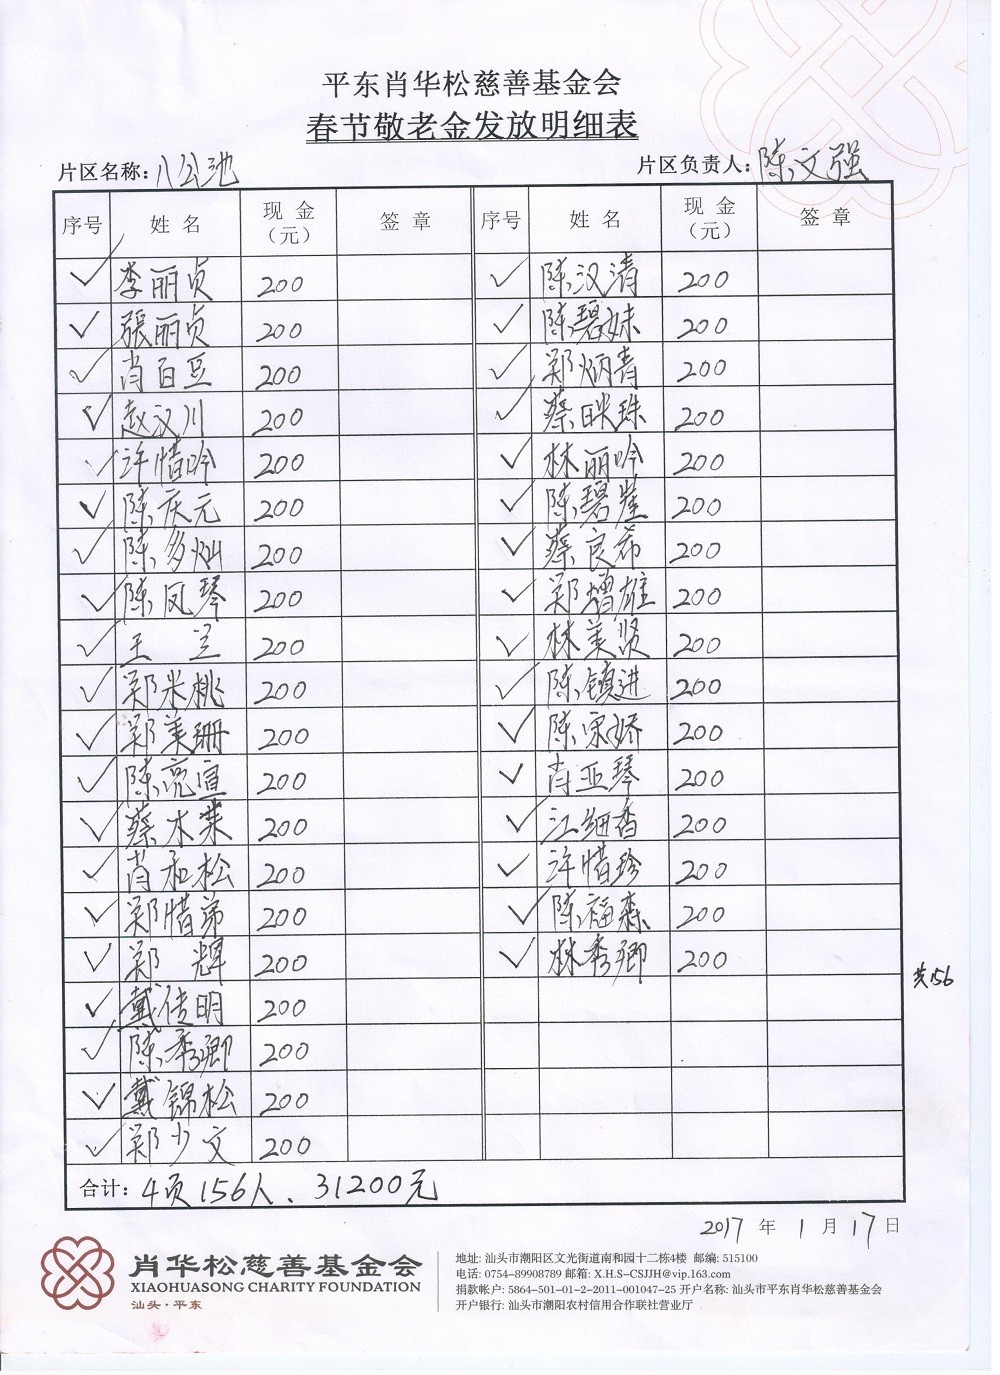 平东肖华松慈善基金会
春节敬老金发放明细表
片区名称：八公池 片区负责人：陈文强
序号 姓名 现金（元） 签章 序号 姓名 现金（元） 签章
✓ 李丽贞 200 ✓ 陈汉清 200
✓ 張丽贞 200 ✓ 陈碧妹 200
✓ 肖百豆 200 ✓ 郑炳青 200
✓ 赵汉川 200 ✓ 蔡映珠 200
✓ 许惜吟 200 ✓ 林丽吟 200
✓ 陈庆元 200 ✓ 陈碧 200
✓ 陈多灿 200 ✓ 蔡良希 200
✓ 陈凤琴 200 ✓ 郑增雄 200
✓ 王兰 200 ✓ 林美贤 200
✓ 郑米桃 200 ✓ 陈镇进 200
✓ 郑美珊 200 ✓ 陈宋娇 200
✓ 陈亮宣 200 ✓ 肖亚琴 200
✓ 蔡木 200 ✓ 江细香 200
✓ 肖和松 200 ✓ 许惜珍 200
✓ 郑惜弟 200 ✓ 陈福森 200
✓ 郑辉 200 ✓ 林秀卿 200
共156
✓ 戴传明 200
✓ 陈秀卿 200
✓ 戴锦松 200
✓ 郑少文 200
合计：4页156人、31200元
2017年1月17日
肖华松慈善基金会
XIAOHUASONG CHARITY FOUNDATION
汕头·平东
地址: 汕头市潮阳区文光街道南和园十二栋4楼 邮编: 515100
电话: 0754-89908789 邮箱: X.H.S-CSJJH@vip.163.com
捐款帐户: 5864-501-01-2-2011-001047-25 开户名称: 汕头市平东肖华松慈善基金会
开户银行: 汕头市潮阳农村信用合作联社营业厅